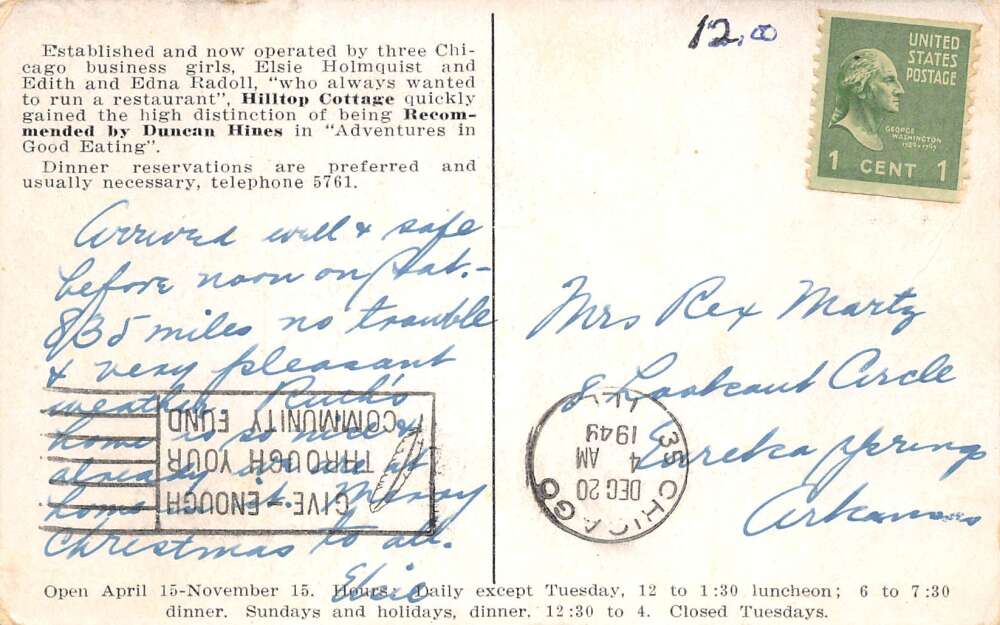 Established and now operated by three Chi-
cago business girls, Elsie Holmquist and
Edith and Edna Radoll, "who always wanted
to run a restaurant", Hilltop Cottage quickly
gained the high distinction of being Recom-
mended by Duncan Hines in "Adventures in
Good Eating".
Dinner reservations are preferred and
usually necessary, telephone 5761.
Arrived well & safe
before noon on Sat.-
835 miles no trouble
& very pleasant
weather. Ruth's
home is so nice &
already we are at
home in it. Merry
Christmas to all.
Elsie
Open April 15-November 15. Hours: Daily except Tuesday, 12 to 1:30 luncheon; 6 to 7:30
dinner. Sundays and holidays, dinner, 12:30 to 4. Closed Tuesdays.
12.00
UNITED
STATES
POSTAGE
GEORGE
WASHINGTON
1789-1797
1 CENT 1
Mrs Rex Martz
8 Lookout Circle
Eureka Springs
Arkansas
GIVE-ENOUGH
THROUGH YOUR
COMMUNITY FUND
CHICAGO 35
ILL.
DEC 20
4 AM
1949